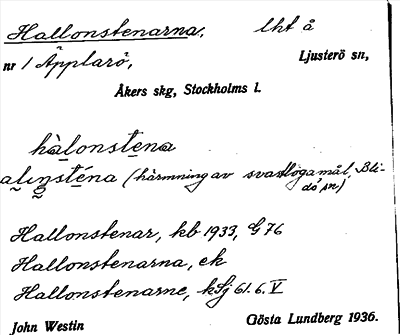 Hallonstenarna, lht å
nr 1 Äpplarö, Ljusterö sn,
Åkers skg, Stockholms l.
hàlonstena
alinsténa (härmning av svartlögamål, Bli-
dö sn)
Hallonstenar, kb 1933, G 76
Hallonstenarna, ek
Hallonstenarne, kSj 61.6.V
John Westin Gösta Lundberg 1936.